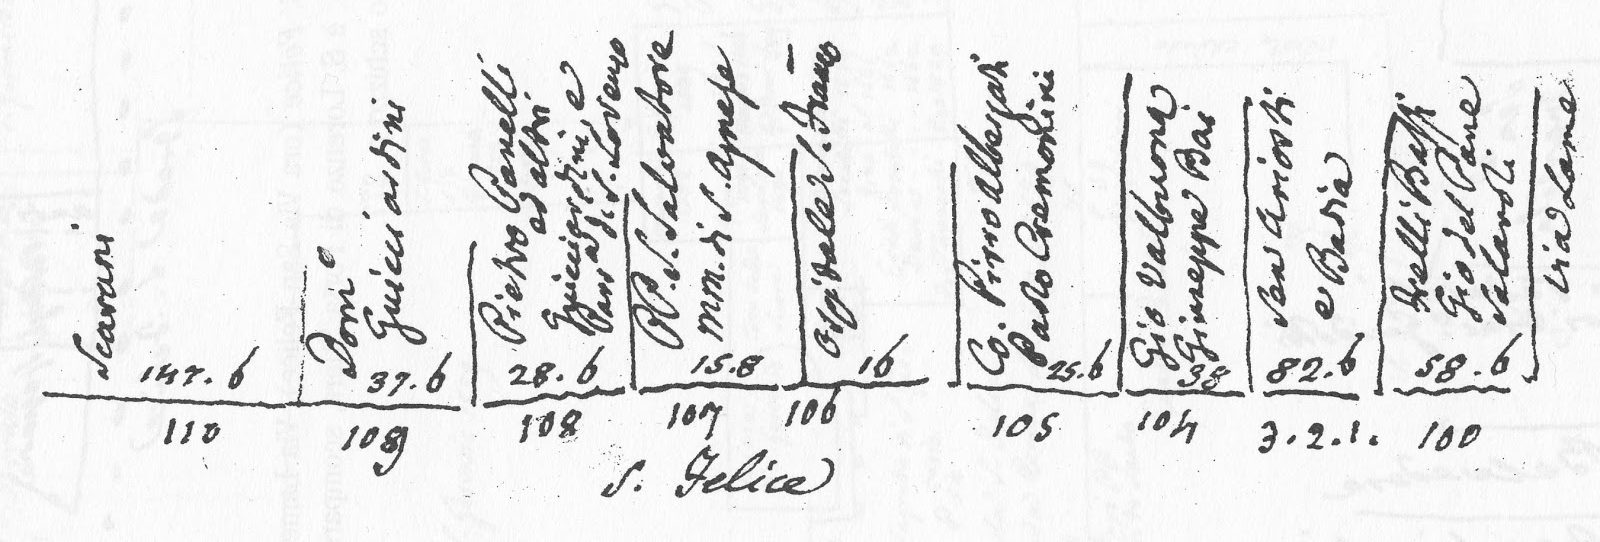 Scarani
147.6
110
Domo
Guicciardini
37.6
109
Pietro Panelli
ed altri
Guicciardini, e
Parr a di S. Lorenzo
28.6
108
RR. S. Salvatore
mm. di S. Agnese
15.8
107
Ospitale S. Franco
16
106
Co. Pirro Albergati
Paolo Cremonini
25.6
105
Gio Valburona
Giuseppe Bai
38
104
Sen Ariosti
e Badia
82.6
3.2.1.
Fratelli Bassi
Gio del Pane
Salaroli
58.6
100
Via Lame
S. Felice